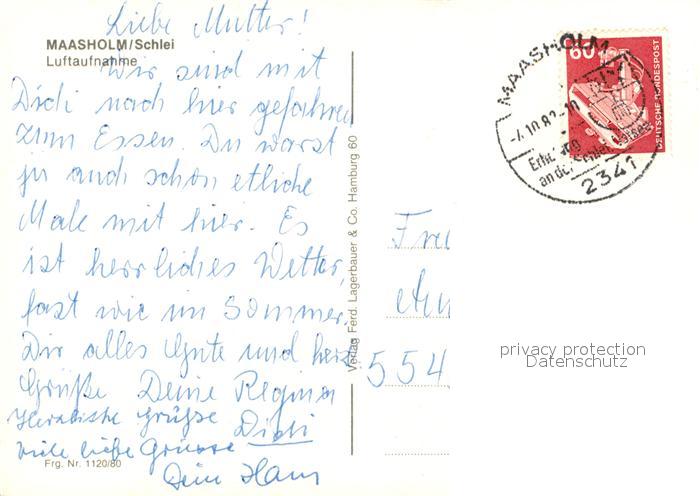 Liebe Mutter!
MAASHOLM/Schlei
Luftaufnahme
Wir sind mit
Didi nach hier gefahren
zum Essen. Du warst
ja auch schon etliche
Male mit hier. Es
ist herrliches Wetter,
fast wie im Sommer.
Dir alles Gute und herz.
Grüße Deine Regina
Herzliche Grüsse
Didi
Viele liebe Grüsse
Dein Hans
Frg. Nr. 1120/80
Verlag Ferd. Lagerbauer & Co. Hamburg 60
554
60
DEUTSCHE BUNDESPOST
MAASHOLM
an der Schlei
2341
privacy protection
Datenschutz